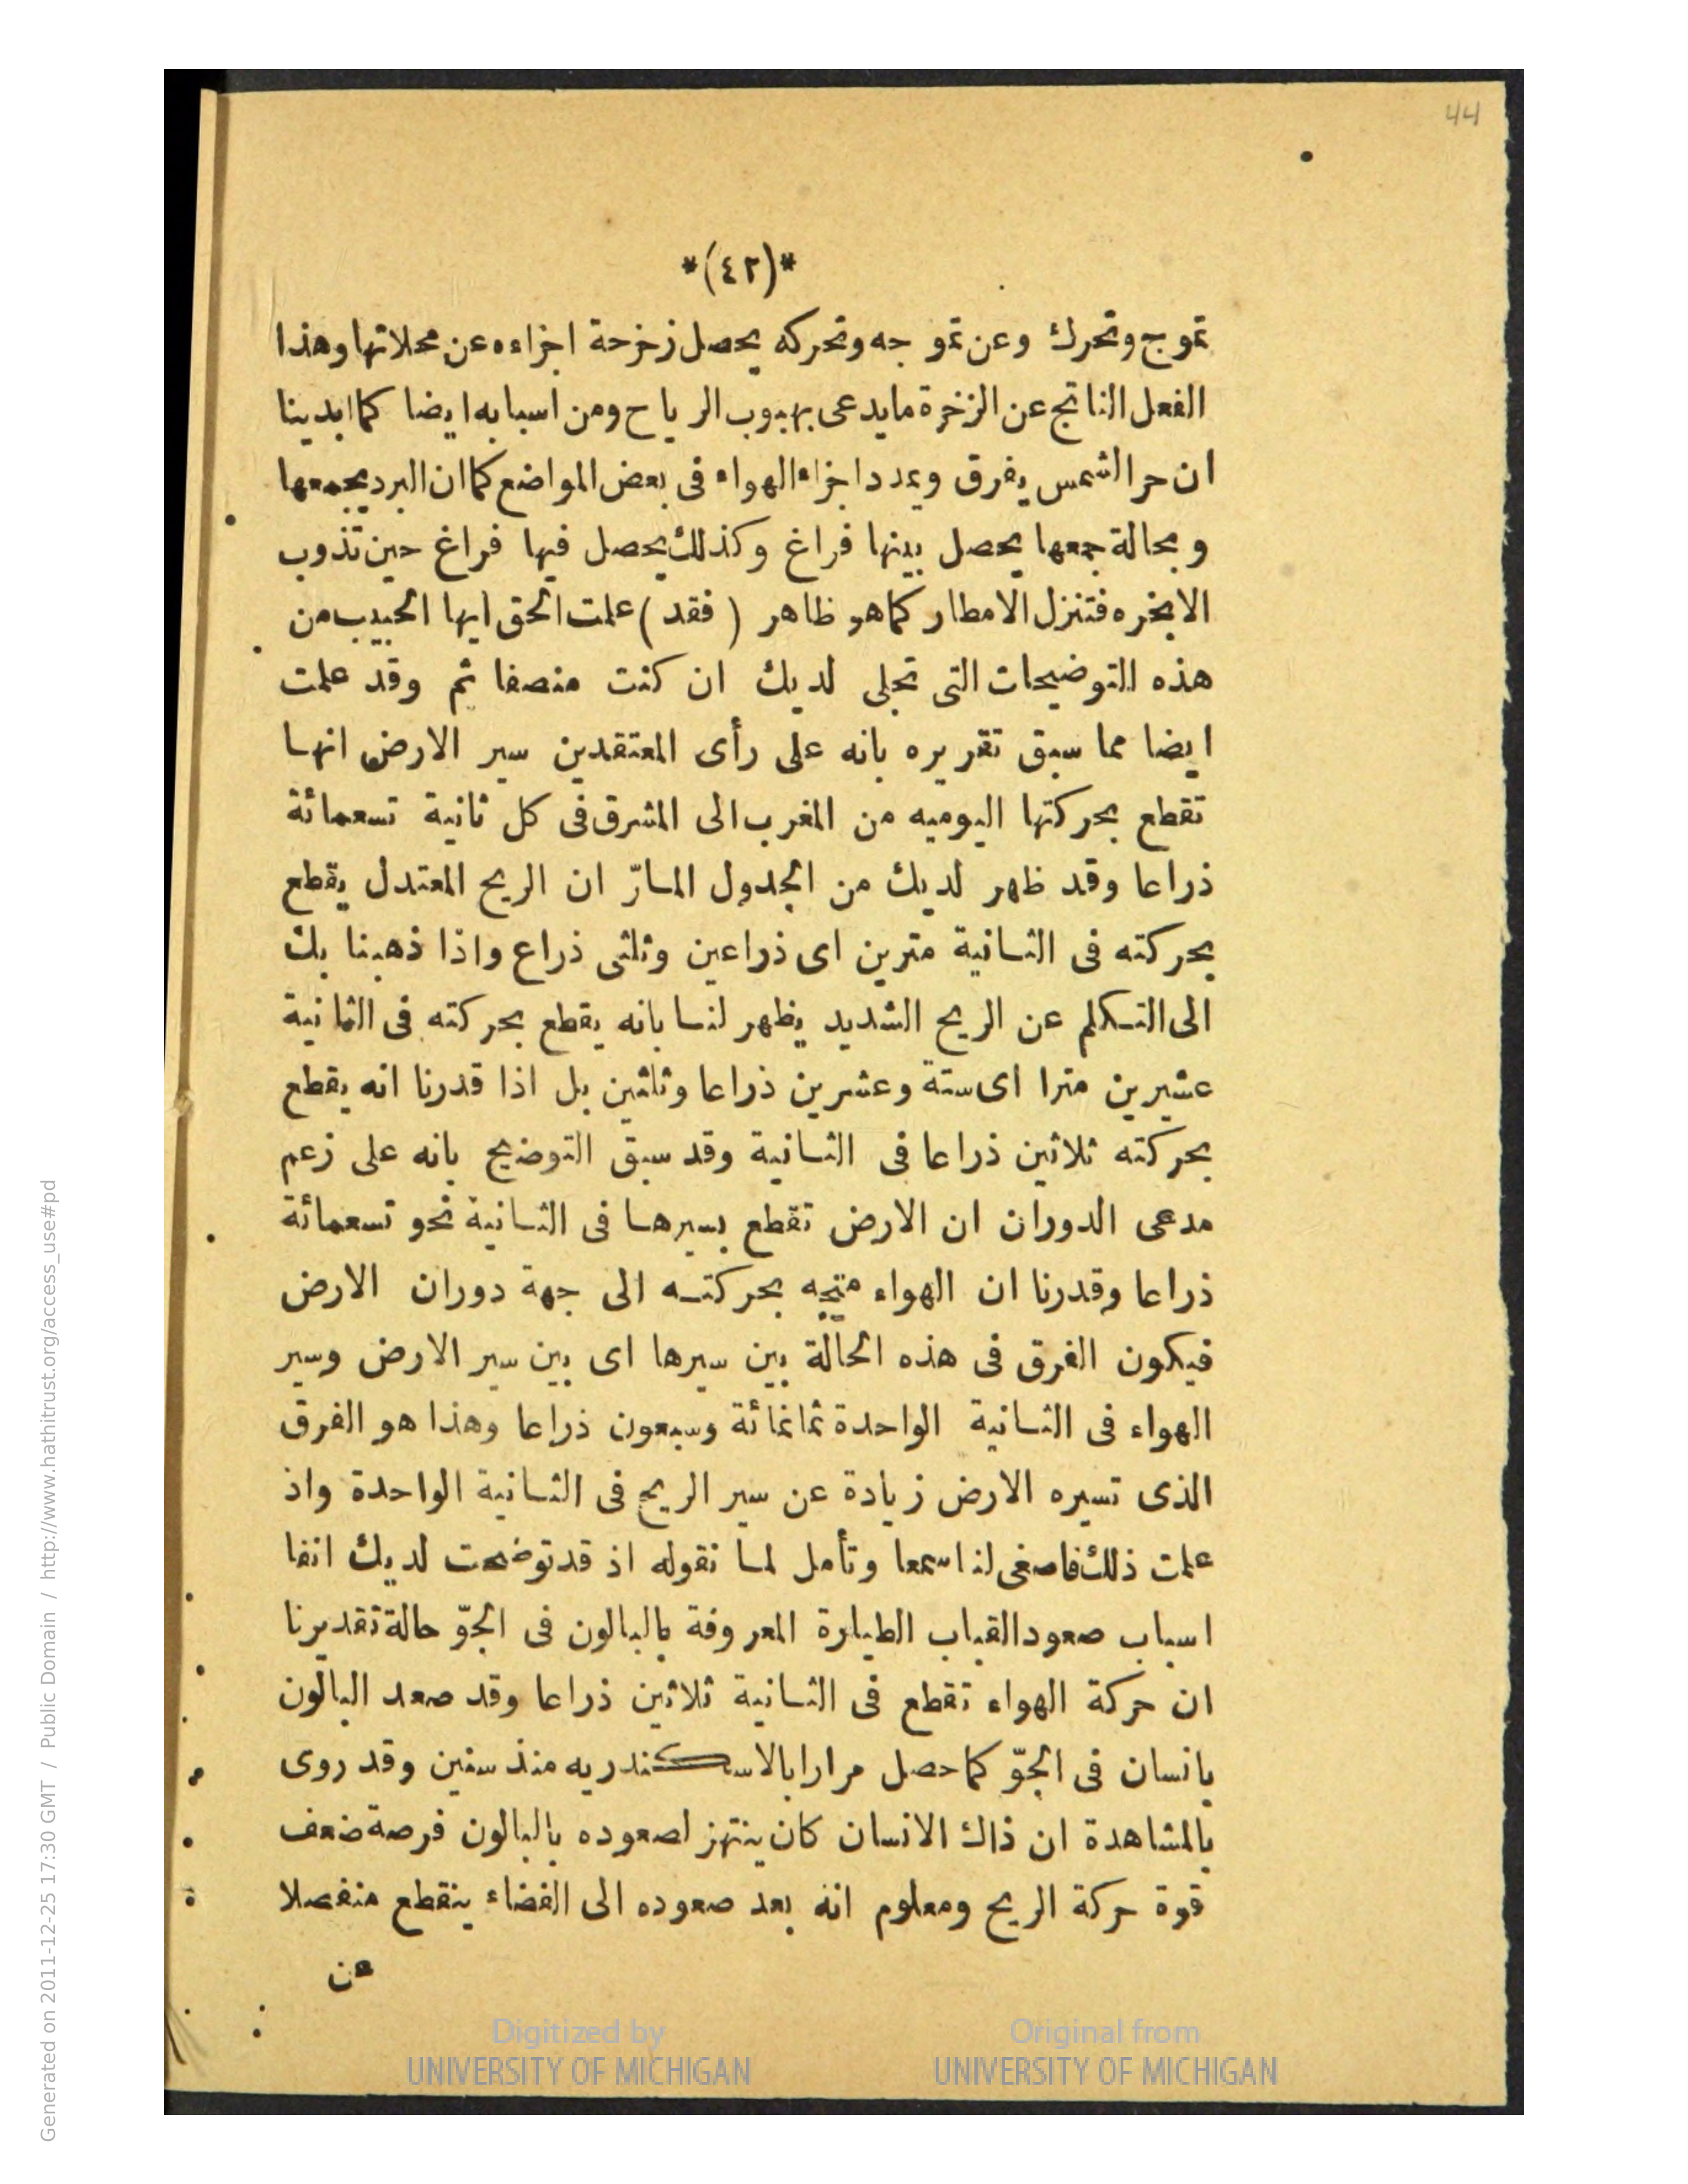 44
*(٤٢)*
تموج وتحرك وعن تمو جه وتحركه يحصل زخزحة اجزاءه عن محلاتها وهذا
الفعل الناتج عن الزخرة مايدعى بهبوب الرياح ومن اسبابه ايضا كما ابدينا
ان حر الشمس يفرق ويمدد اجزاء الهواء فى بعض المواضع كما ان البرد يجمعها
وبحالة جمعها يحصل بينها فراغ وكذلك يحصل فيها فراغ حين تذوب
الابخره فتنزل الامطار كما هو ظاهر (فقد) علمت الحق ايها الحبيب من
هذه التوضيحات التى تجلى لديك ان كنت منصفا ثم وقد علمت
ايضا مما سبق تقريره بانه على رأى المعتقدين سير الارض انها
تقطع بحركتها اليوميه من المغرب الى المشرق فى كل ثانية تسعمائة
ذراعا وقد ظهر لديك من الجدول المارّ ان الريح المعتدل يقطع
بحركته فى الثانية مترين اى ذراعين وثلثى ذراع واذا ذهبنا بك
الى التكلم عن الريح الشديد يظهر لنا بانه يقطع بحركته فى الثانية
عشرين مترا اى ستة وعشرين ذراعا وثلثين بل اذا قدرنا انه يقطع
بحركته ثلاثين ذراعا فى الثانية وقد سبق التوضيح بانه على زعم
مدعى الدوران ان الارض تقطع بسيرها فى الثانية نحو تسعمائة
ذراعا وقدرنا ان الهواء متجه بحركته الى جهة دوران الارض
فيكون الفرق فى هذه الحالة بين سيرها اى بين سير الارض وسير
الهواء فى الثانية الواحدة ثمانمائة وسبعون ذراعا وهذا هو الفرق
الذى تسيره الارض زيادة عن سير الريح فى الثانية الواحدة واذ
علمت ذلك فاصغى لنا سمعا وتأمل لما نقوله اذ قد توضحت لديك انفا
اسباب صعود القباب الطيارة المعروفة بالبالون فى الجوّ حالة تقديرنا
ان حركة الهواء تقطع فى الثانية ثلاثين ذراعا وقد صعد البالون
بانسان فى الجوّ كما حصل مرارا بالاسكندريه منذ سنين وقد روى
بالمشاهدة ان ذاك الانسان كان ينتهز لصعوده بالبالون فرصة ضعف
قوة حركة الريح ومعلوم انه بعد صعوده الى الفضاء ينقطع منفصلا
عن
Digitized by
UNIVERSITY OF MICHIGAN
Original from
UNIVERSITY OF MICHIGAN
Generated on 2011-12-25 17:30 GMT / Public Domain / http://www.hathitrust.org/access_use#pd